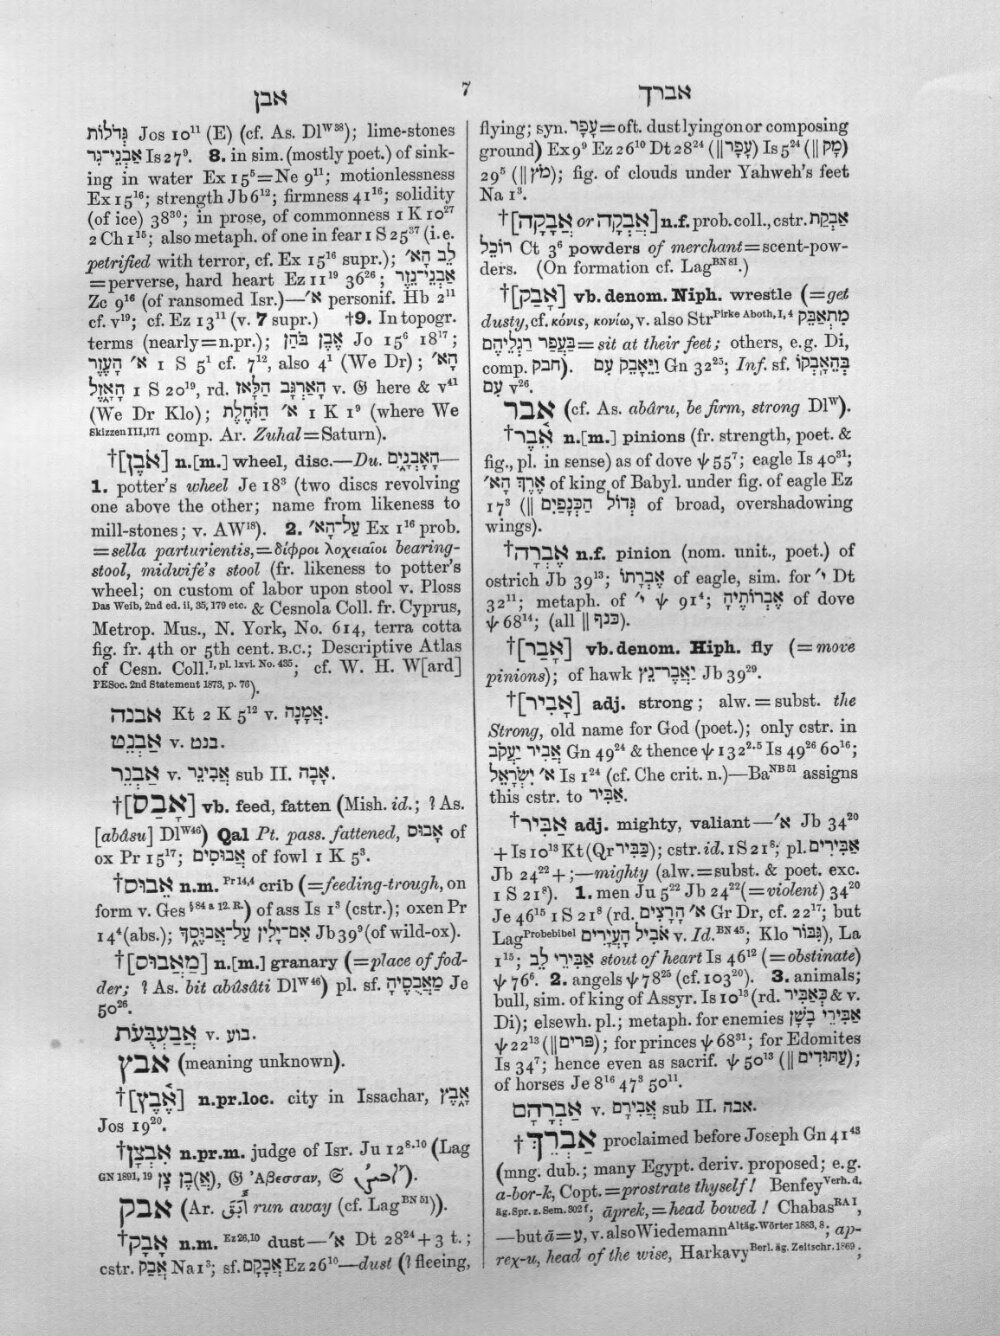 אבן
7
אברך
גְּדֹלוֹת Jos 10¹¹ (E) (cf. As. Dlᵂ³⁸); lime-stones
אַבְנֵי־גִר Is 27⁹. 8. in sim. (mostly poet.) of sink-
ing in water Ex 15⁵=Ne 9¹¹; motionlessness
Ex 15¹⁶; strength Jb 6¹²; firmness 41¹⁶; solidity
(of ice) 38³⁰; in prose, of commonness 1 K 10²⁷
2 Ch 1¹⁵; also metaph. of one in fear 1 S 25³⁷ (i.e.
petrified with terror, cf. Ex 15¹⁶ supr.); לֵב הָא׳
=perverse, hard heart Ez 11¹⁹ 36²⁶; אַבְנֵי־נֵזֶר
Zc 9¹⁶ (of ransomed Isr.)—א׳ personif. Hb 2¹¹
cf. v¹⁹; cf. Ez 13¹¹ (v. 7 supr.) †9. In topogr.
terms (nearly=n.pr.); אֶבֶן בֹּהַן Jo 15⁶ 18¹⁷;
א׳ הָעֶזֶר 1 S 5¹ cf. 7¹², also 4¹ (We Dr); הָא׳
הָאָזֶל 1 S 20¹⁹, rd. הָאַרְגָּב הַלָּאז v. 𝔊 here & v⁴¹
(We Dr Klo); א׳ הַזֹּחֶלֶת 1 K 1⁹ (where We
Skizzen III, 171 comp. Ar. Zuhal=Saturn).
†[אֹבֶן] n.[m.] wheel, disc.—Du. הָאָבְנָיִם—
1. potter's wheel Je 18³ (two discs revolving
one above the other; name from likeness to
mill-stones; v. AW¹⁸). 2. עַל־הָא׳ Ex 1¹⁶ prob.
=sella parturientis,=δίφροι λοχειαῖοι bearing-
stool, midwife's stool (fr. likeness to potter's
wheel; on custom of labor upon stool v. Ploss
Das Weib, 2nd ed. ii, 35, 179 etc. & Cesnola Coll. fr. Cyprus,
Metrop. Mus., N. York, No. 614, terra cotta
fig. fr. 4th or 5th cent. B.C.; Descriptive Atlas
of Cesn. Coll. I, pl. lxvi. No. 435; cf. W. H. W[ard]
PESoc. 2nd Statement 1873, p. 76).
אבנה Kt 2 K 5¹² v. אֲמָנָה.
אַבְנֵט v. בנט.
אַבְנֵר v. אֲבִינֵר sub II. אָבָה.
†[אָבַס] vb. feed, fatten (Mish. id.; ? As.
[abâsu] Dlᵂ⁴⁶) Qal Pt. pass. fattened, אָבוּס of
ox Pr 15¹⁷; אֲבוּסִים of fowl 1 K 5³.
†אֵבוּס n.m. Pr 14, 4 crib (=feeding-trough, on
form v. Ges § 84 a 12. R.) of ass Is 1³ (cstr.); oxen Pr
14⁴ (abs.); אִם־יָלִין עַל־אֲבוּסֶךָ Jb 39⁹ (of wild-ox).
†[מַאֲבוּס] n.[m.] granary (=place of fod-
der; ? As. bit abûsâti Dlᵂ⁴⁶) pl. sf. מַאֲבֻסֶיהָ Je
50²⁶.
אֲבַעְבֻּעֹת v. בוע.
אבץ (meaning unknown).
†[אֶבֶץ] n.pr.loc. city in Issachar, אָבֶץ
Jos 19²⁰.
†אִבְצָן n.pr.m. judge of Isr. Ju 12⁸·¹⁰ (Lag
GN 1891, 19 אֶ)בֶן צָן), 𝔊 Ἀβεσσαν, 𝔖).
אבק (Ar. أَبَقَ run away (cf. Lag BN 51)).
†אָבָק n.m. Ez 26, 10 dust—א׳ Dt 28²⁴+3 t.;
cstr. אֲבַק Na 1³; sf. אֲבָקָם Ez 26¹⁰—dust (? fleeing,
flying; syn. עָפָר=oft. dust lying on or composing
ground) Ex 9⁹ Ez 26¹⁰ Dt 28²⁴ (‖ עָפָר) Is 5²⁴ (‖ מָק)
29⁵ (‖ מֹץ); fig. of clouds under Yahweh's feet
Na 1³.
†[אֲבָקָה or אַבְקָה] n.f. prob. coll., cstr. אַבְקַת
רוֹכֵל Ct 3⁶ powders of merchant=scent-pow-
ders. (On formation cf. Lag BN 81.)
†[אָבַק] vb. denom. Niph. wrestle (=get
dusty, cf. κόνις, κονίω, v. also Str Pirke Aboth, I, 4 מִתְאַבֵּק
בַּעֲפַר רַגְלֵיהֶם=sit at their feet; others, e.g. Di,
comp. חבק). וַיֵּאָבֵק עִם Gn 32²⁵; Inf. sf. בְּהֵאָבְקוֹ
עִם v²⁶.
אבר (cf. As. abâru, be firm, strong Dlᵂ).
†אֵבֶר n.[m.] pinions (fr. strength, poet. &
fig., pl. in sense) as of dove ψ 55⁷; eagle Is 40³¹;
אֶרֶךְ הָא׳ of king of Babyl. under fig. of eagle Ez
17³ (‖ גְּדוֹל הַכְּנָפַיִם of broad, overshadowing
wings).
†אֶבְרָה n.f. pinion (nom. unit., poet.) of
ostrich Jb 39¹³; אֶבְרָתוֹ of eagle, sim. for י׳ Dt
32¹¹; metaph. of י׳ ψ 91⁴; אֶבְרוֹתֶיהָ of dove
ψ 68¹⁴; (all ‖ כנף).
†[אָבַר] vb. denom. Hiph. fly (=move
pinions); of hawk יַאֲבֶר־נֵץ Jb 39²⁹.
†[אָבִיר] adj. strong; alw.=subst. the
Strong, old name for God (poet.); only cstr. in
אֲבִיר יַעֲקֹב Gn 49²⁴ & thence ψ 132²·⁵ Is 49²⁶ 60¹⁶;
א׳ יִשְׂרָאֵל Is 1²⁴ (cf. Che crit. n.)—Ba NB 51 assigns
this cstr. to אַבִּיר.
†אַבִּיר adj. mighty, valiant—א׳ Jb 34²⁰
+ Is 10¹³ Kt (Qr כַּבִּיר); cstr. id. 1 S 21⁸; pl. אַבִּירִים
Jb 24²²+;—mighty (alw.=subst. & poet. exc.
1 S 21⁸). 1. men Ju 5²² Jb 24²² (=violent) 34²⁰
Je 46¹⁵ 1 S 21⁸ (rd. א׳ הָרָצִים Gr Dr, cf. 22¹⁷; but
Lag Probebibel אֹבִיל הָעֲיָרִים v. Id. BN 45; Klo גִּבּוֹר), La
1¹⁵; אַבִּירֵי לֵב stout of heart Is 46¹² (=obstinate)
ψ 76⁶. 2. angels ψ 78²⁵ (cf. 103²⁰). 3. animals;
bull, sim. of king of Assyr. Is 10¹³ (rd. כָּאַבִּיר & v.
Di); elsewh. pl.; metaph. for enemies אַבִּירֵי בָשָׁן
ψ 22¹³ (‖ פרים); for princes ψ 68³¹; for Edomites
Is 34⁷; hence even as sacrif. ψ 50¹³ (‖ עַתּוּדִים);
of horses Je 8¹⁶ 47³ 50¹¹.
אַבְרָהָם v. אֲבִירָם sub II. אבה.
†אַבְרֵךְ proclaimed before Joseph Gn 41⁴³
(mng. dub.; many Egypt. deriv. proposed; e.g.
a-bor-k, Copt.=prostrate thyself! Benfey Verh. d.
äg. Spr. z. Sem. 302 f; āprek,=head bowed! Chabas RA I,
—but ā=ע, v. also Wiedemann Altäg. Wörter 1883, 8; ap-
rex-u, head of the wise, Harkavy Berl. äg. Zeitschr. 1869;